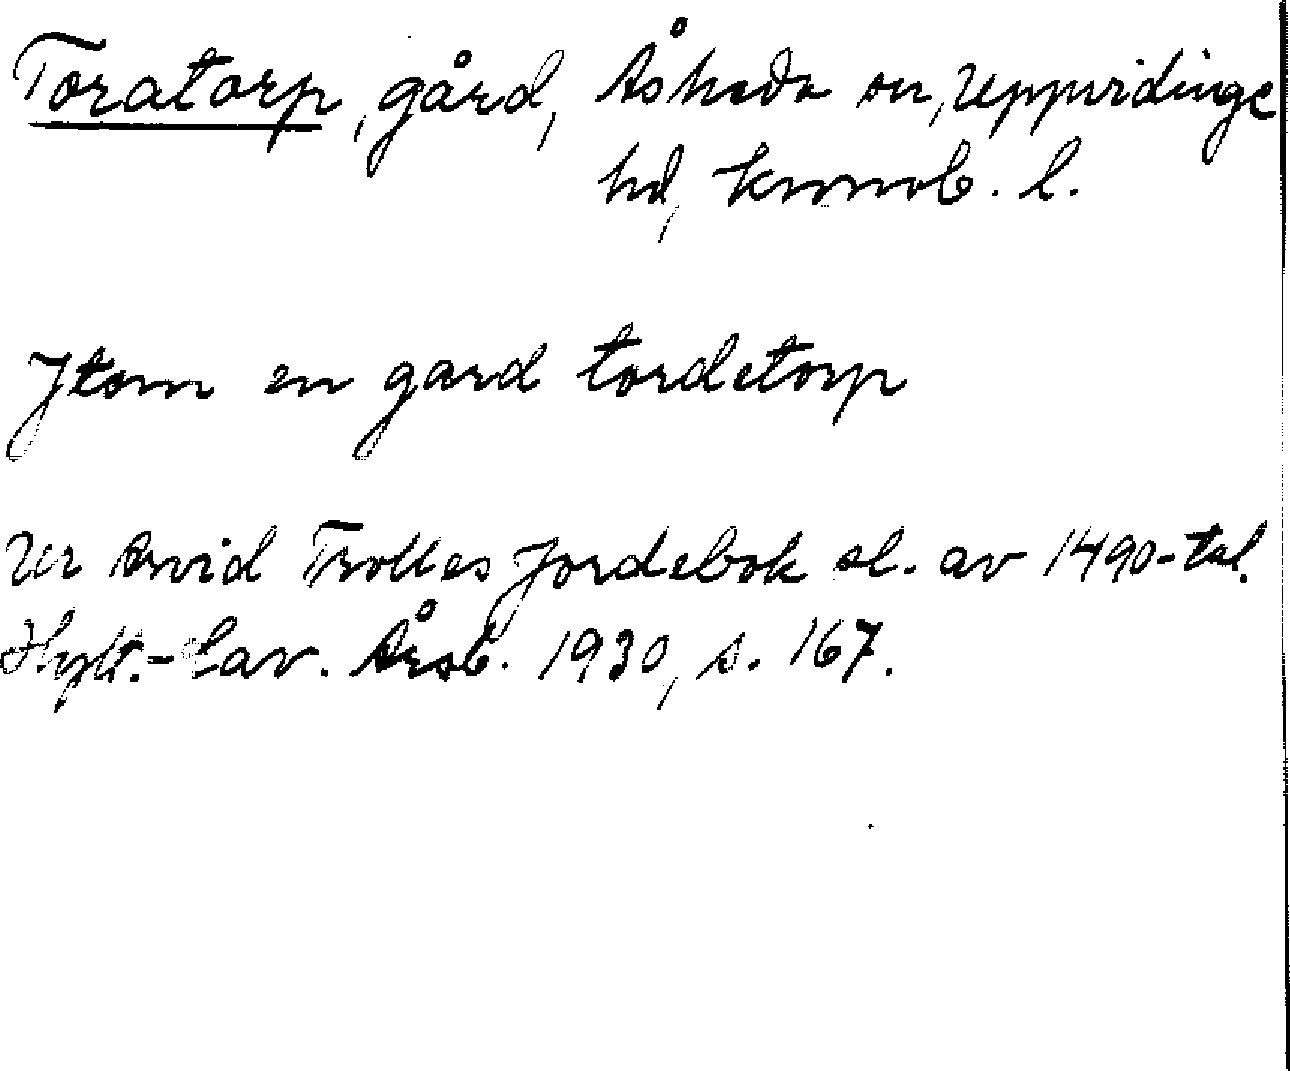 Toratorp, gård, Åsheda sn, Uppvidinge
hd, Kronob. l.
Jtem en gard tordetorp
Ur Arvid Trolles Jordebok sl. av 1490-tal.
Hylt.-Cav. Årsb. 1930, s. 167.